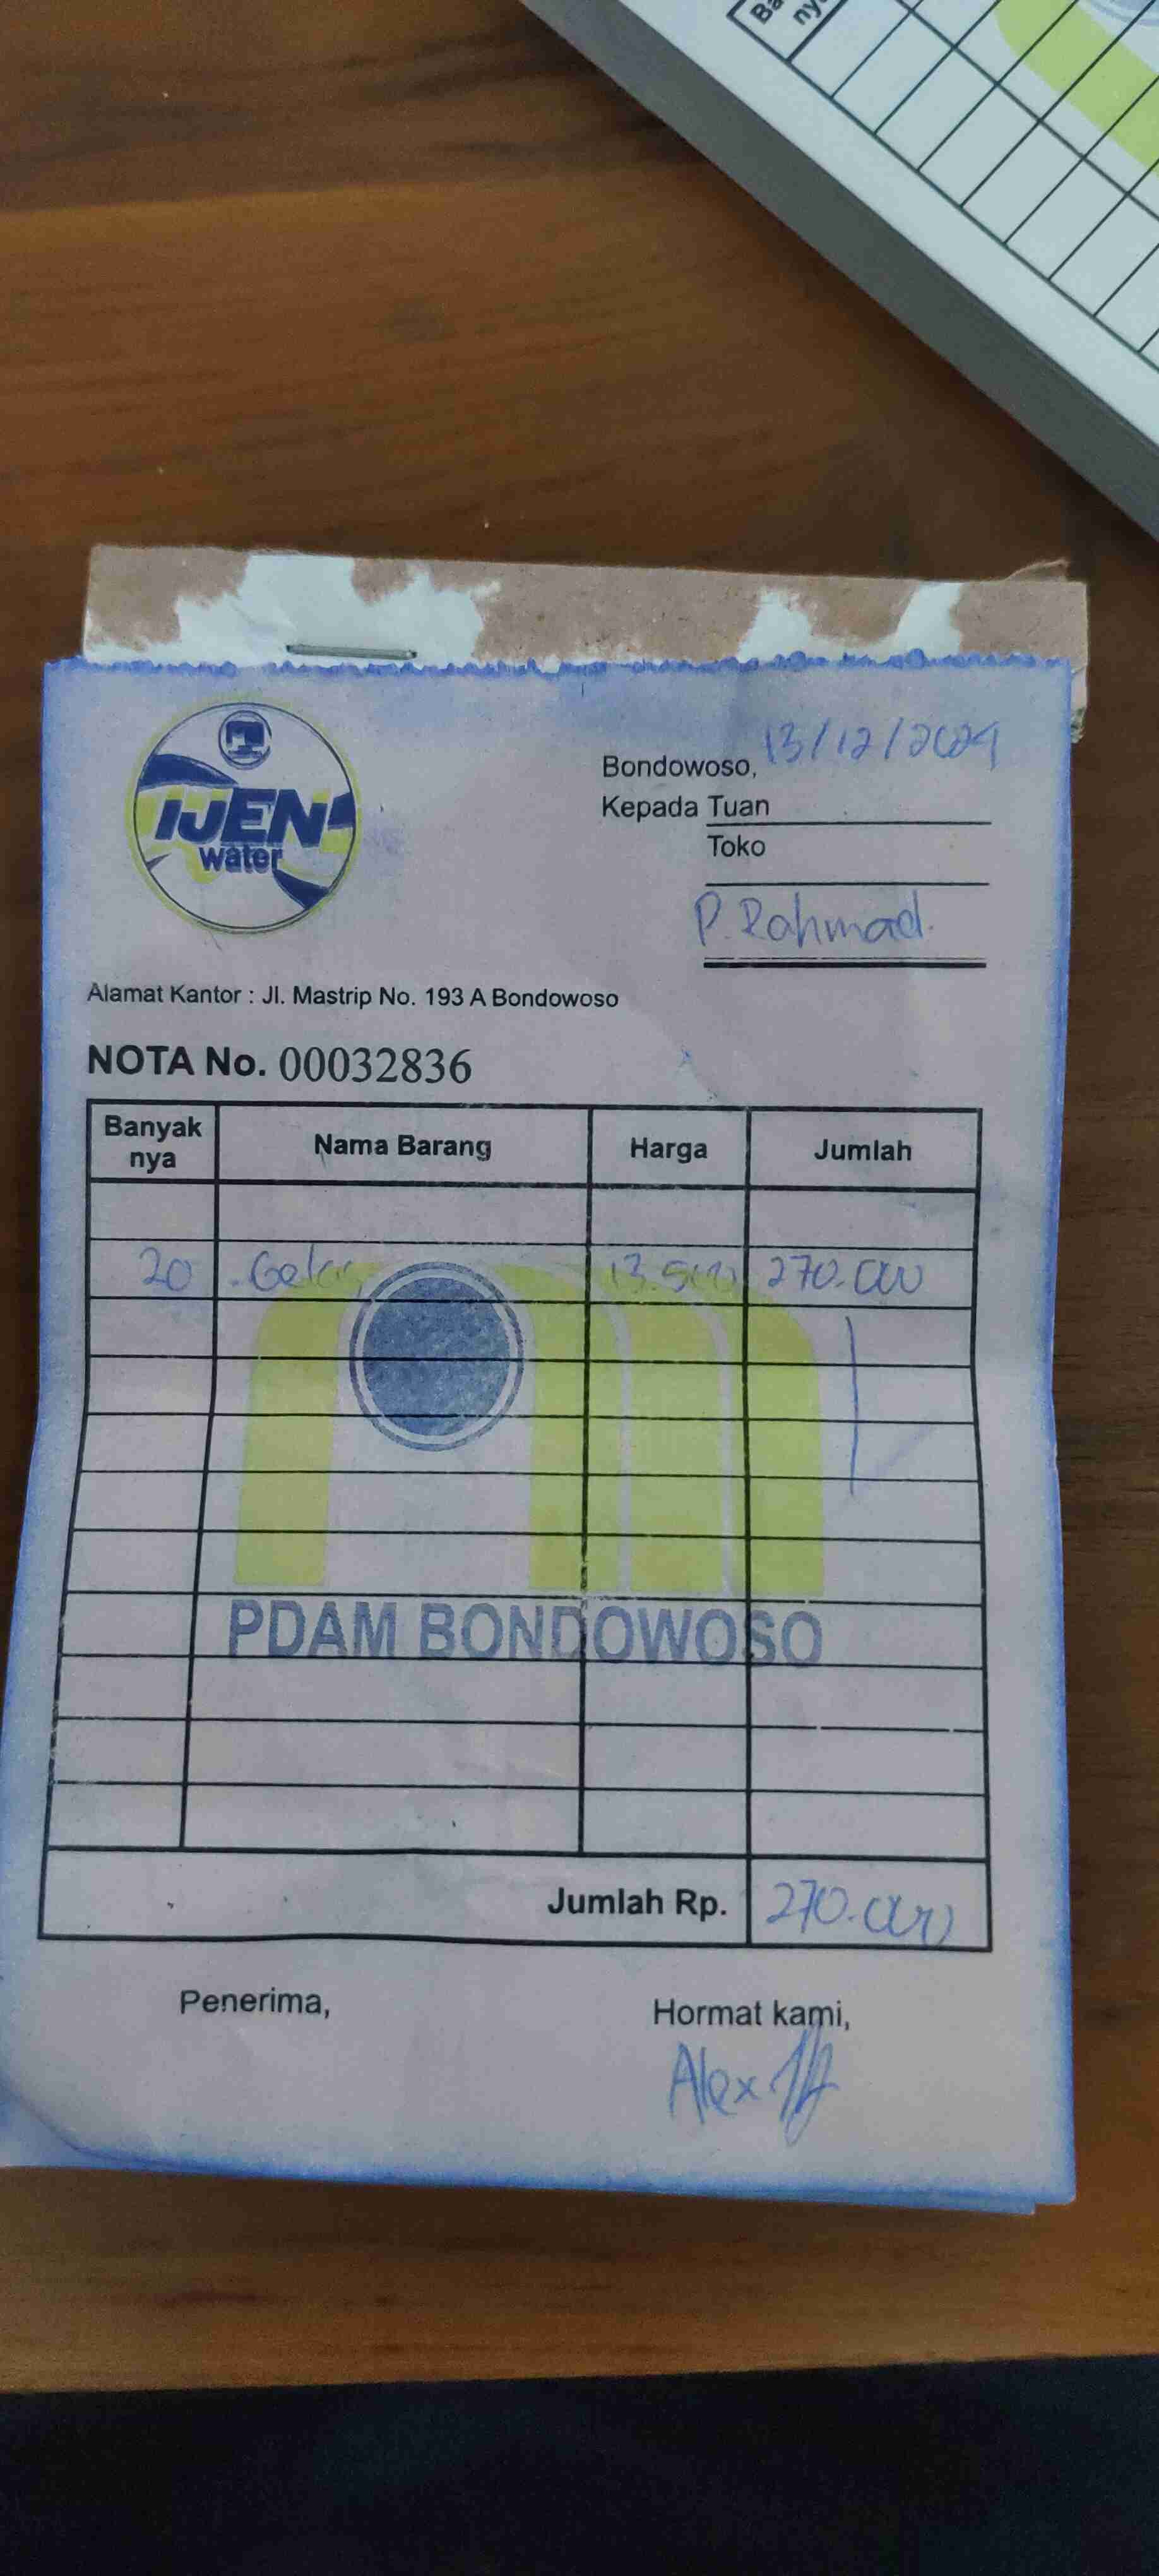 Ba
ny
IJEN
water
Bondowoso, 13/12/2024
Kepada Tuan
Toko
P. Rahmad.
Alamat Kantor : Jl. Mastrip No. 193 A Bondowoso
NOTA No. 00032836
Banyak nya Nama Barang Harga Jumlah
20 Gelas 13.500 270.000
PDAM BONDOWOSO
Jumlah Rp. 270.000
Penerima, Hormat kami,
Alex